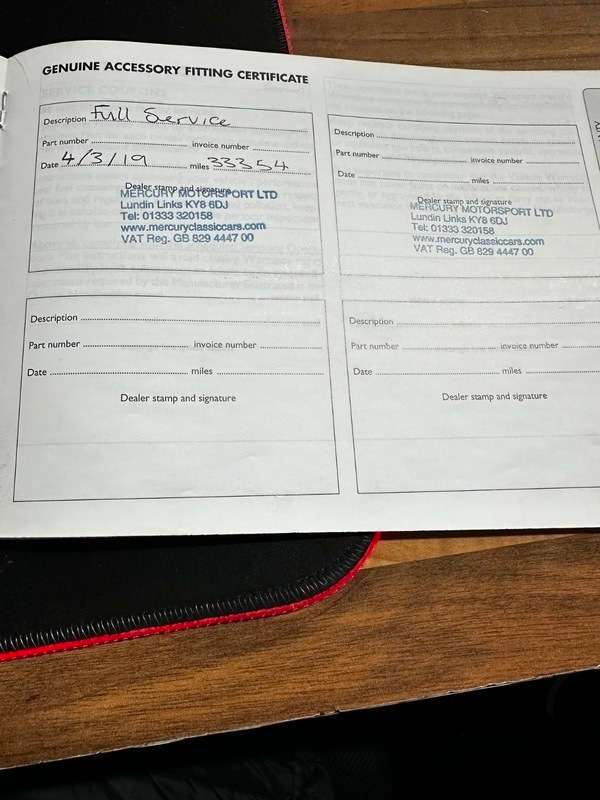 GENUINE ACCESSORY FITTING CERTIFICATE
Description Full Service
Part number invoice number
Date 4/3/19 miles 33354
Dealer stamp and signature
MERCURY MOTORSPORT LTD
Lundin Links KY8 6DJ
Tel: 01333 320158
www.mercuryclassiccars.com
VAT Reg. GB 829 4447 00
Description
Part number invoice number
Date miles
Dealer stamp and signature
MERCURY MOTORSPORT LTD
Lundin Links KY8 6DJ
Tel: 01333 320158
www.mercuryclassiccars.com
VAT Reg. GB 829 4447 00
Description
Part number invoice number
Date miles
Dealer stamp and signature
Description
Part number invoice number
Date miles
Dealer stamp and signature